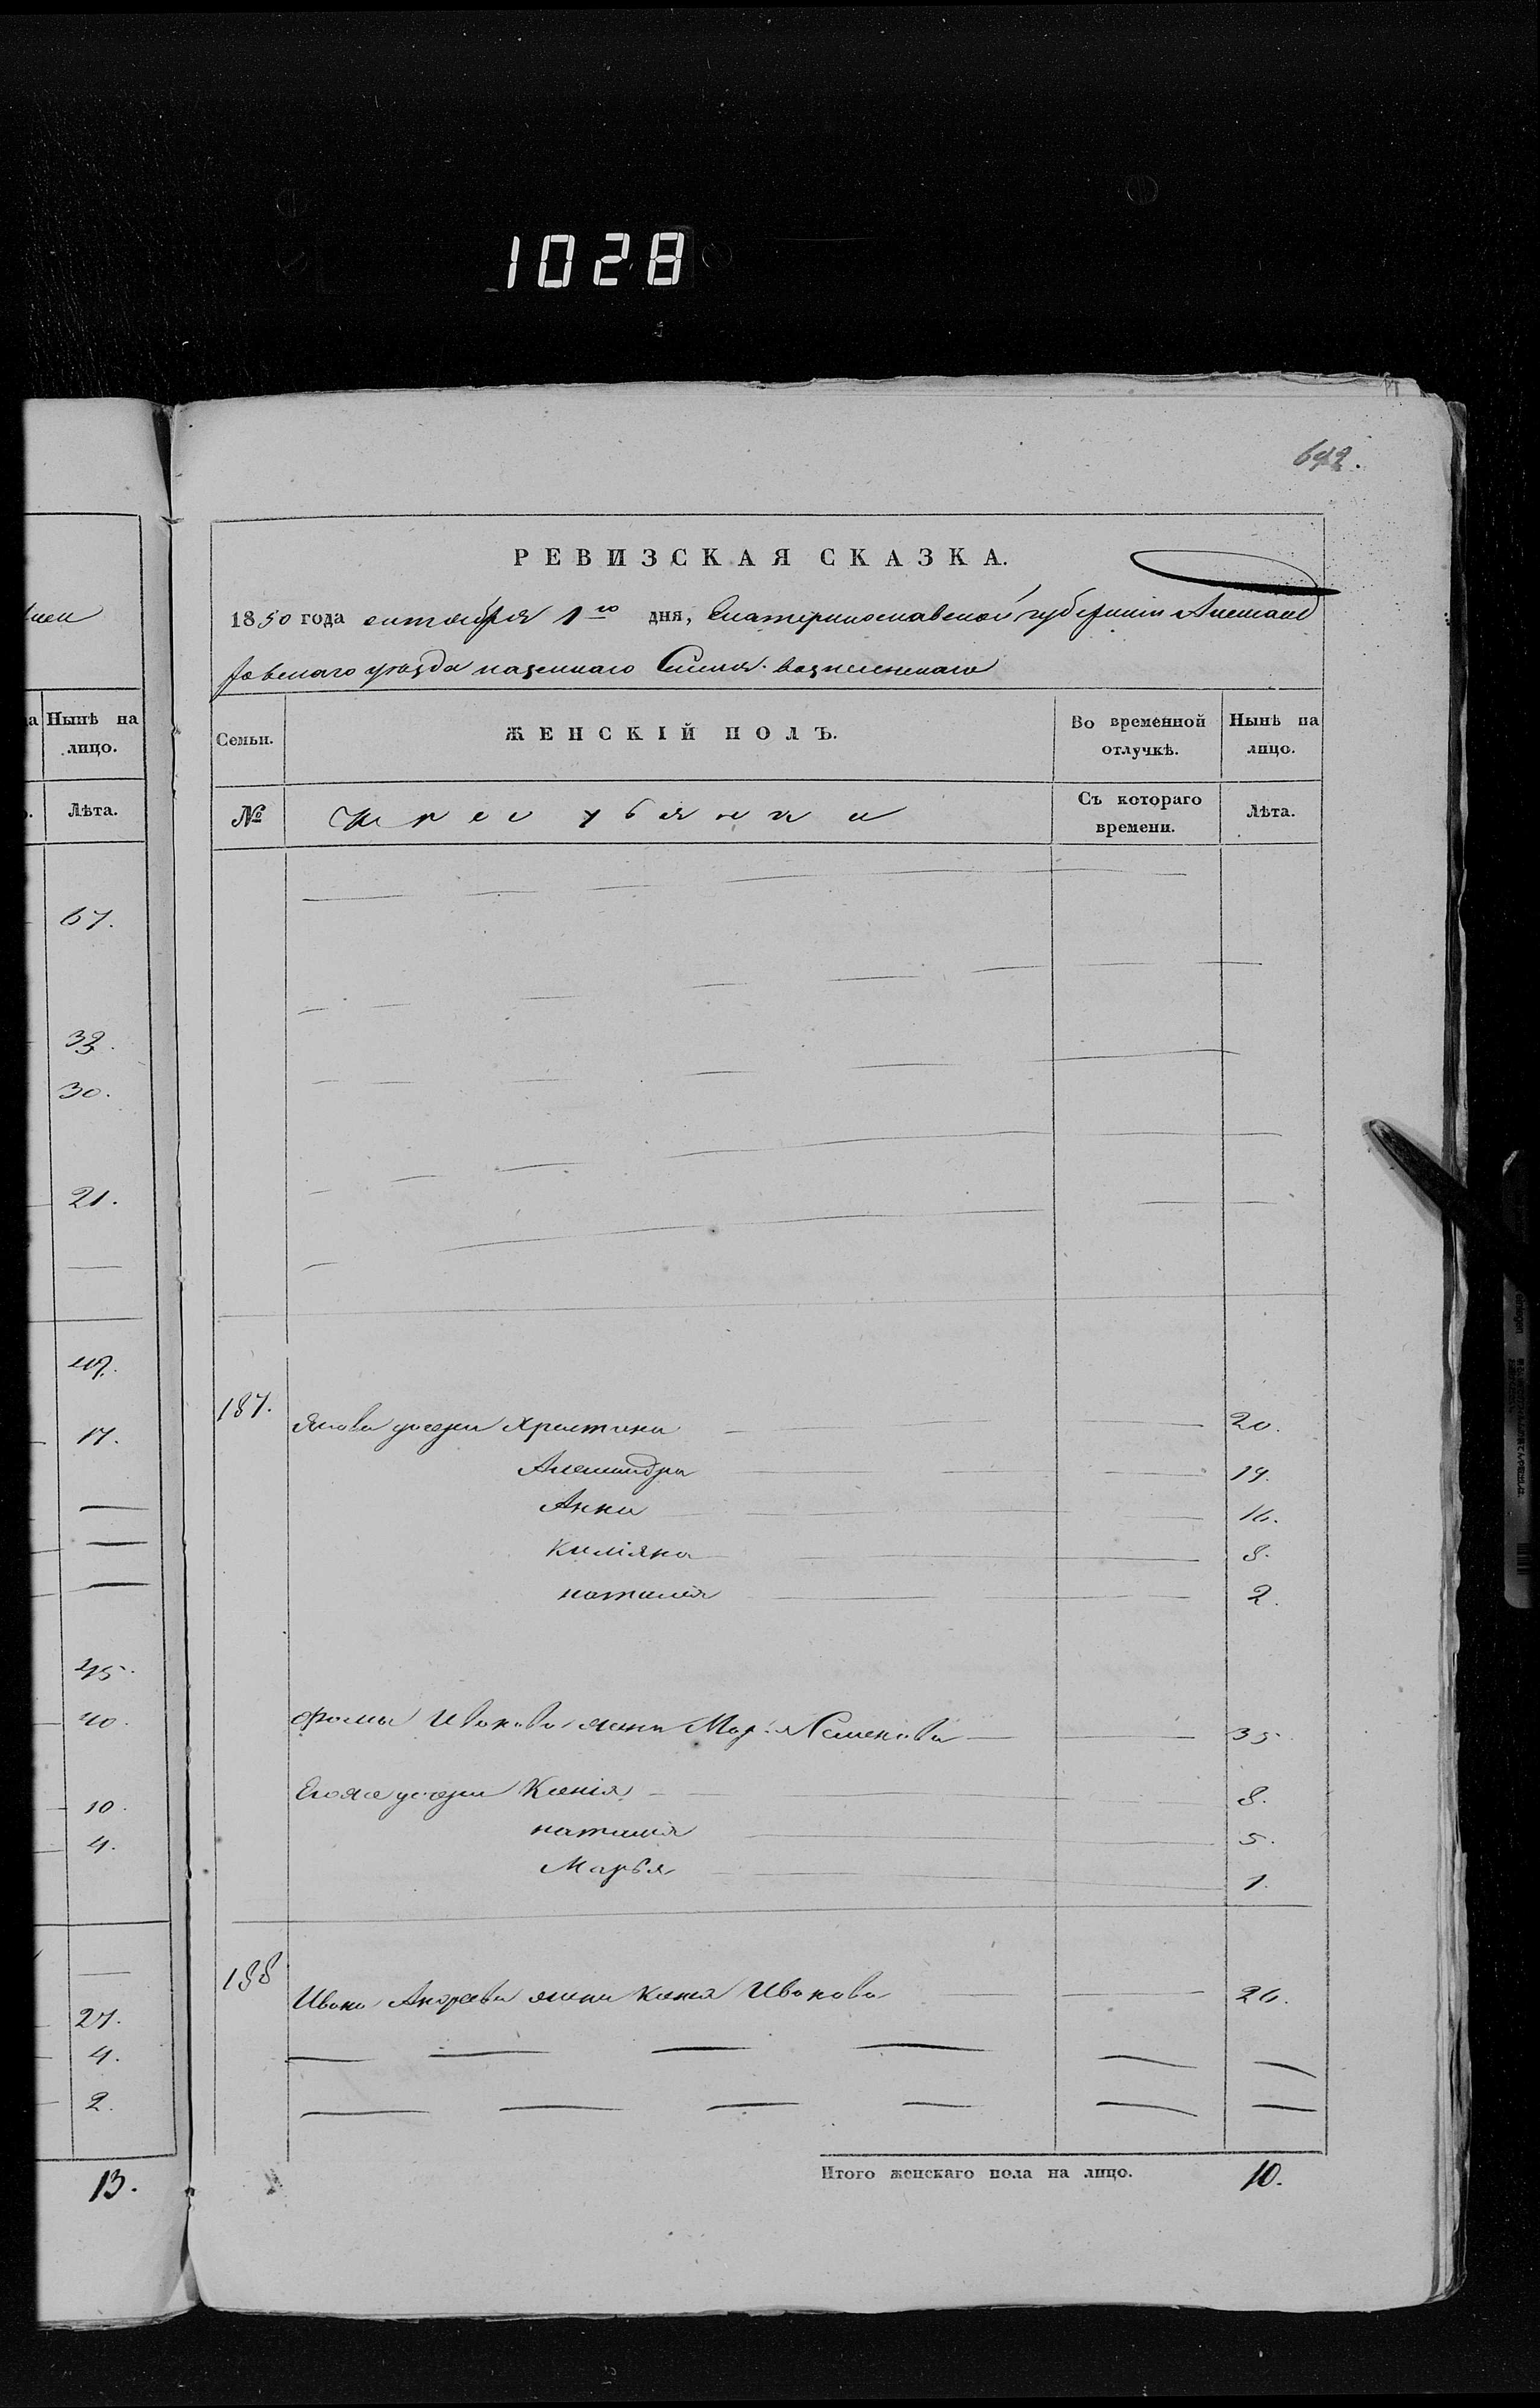 1028
642.
РЕВИЗСКАЯ СКАЗКА.
1850 года октября 1го дня, Екатеринославской губернии Александ
ровскаго уезда казеннаго Селения Вознесенскаго
Семьи. ЖЕНСКІЙ ПОЛЪ. Во временной отлучкѣ. Нынѣ на лицо.
№ Съ котораго времени. Лѣта.
187. Якова дочери Христина 20.
Александра 19.
Анна 16.
Килияна 8.
наталия 2.
Фомы Иванова жена Марья Семенова 35
Егоже дочери Ксенія 8.
наталия 5.
Марья 1.
188 Ивана Андреева жена Ксенія Иванова 26.
Итого женскаго пола на лицо. 10.
Нынѣ на лицо.
Лѣта.
67.
30.
21.
17.
45.
40.
10.
4.
27.
4.
2.
13.